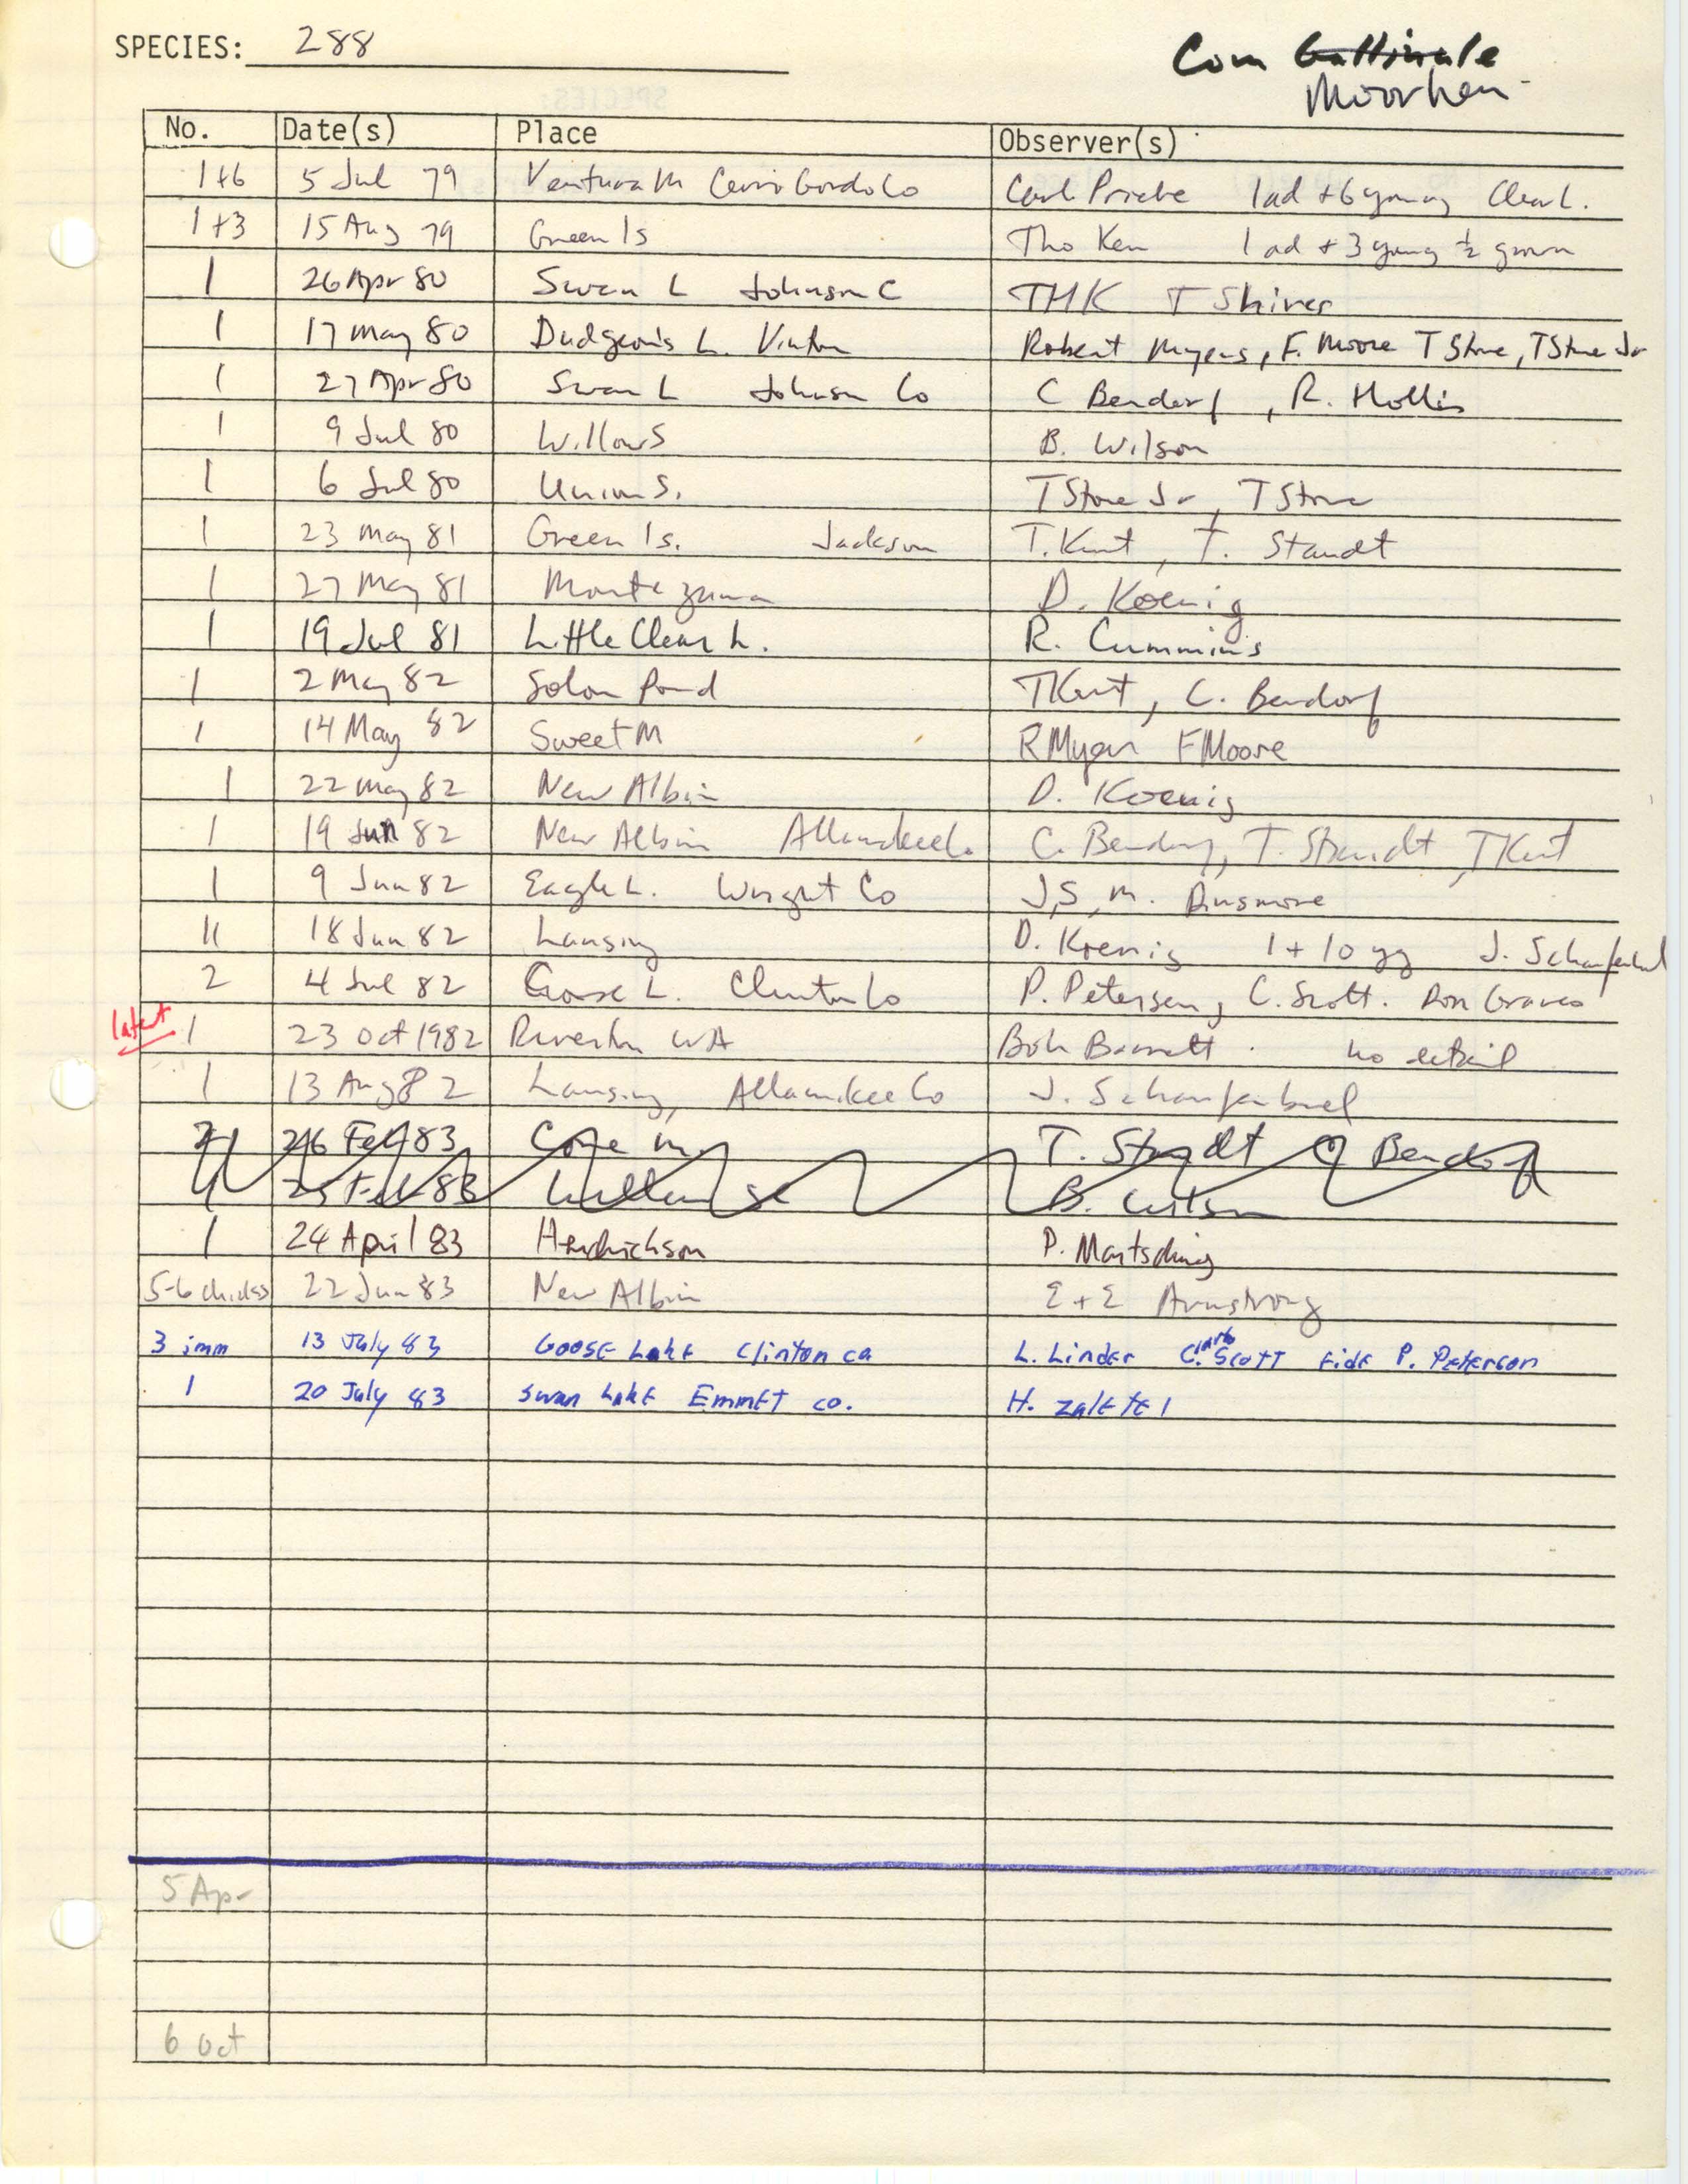 SPECIES: 288
Com Gallinule
Moorhen
No. Date(s) Place Observer(s)
1+6 5 Jul 79 Ventura M Cerro Gordo Co Carl Priebe 1 ad + 6 young Clear L.
1+3 15 Aug 79 Green Is Tho Ken 1 ad + 3 young ½ grown
1 26 Apr 80 Swan L Johnson C THK T Shires
1 17 May 80 Dudgeon's L. Vinton Robert Myers, F. Moore T Stone, T Stone Jr
1 27 Apr 80 Swan L Johnson Co C Bendorf, R. Hollis
1 9 Jul 80 Willow S B. Wilson
1 6 Jul 80 Union S. T Stone Jr, T Stone
1 23 May 81 Green Is. Jackson T. Kent, T. Staudt
1 27 May 81 Montezuma D. Koenig
1 19 Jul 81 Little Clear L. R. Cummins
1 2 May 82 Solon Pond T Kent, C. Bendorf
1 14 May 82 Sweet M R Myers F Moore
1 22 May 82 New Albin D. Koenig
1 19 Jun 82 New Albin Allamakee C. C. Bendorf, T. Staudt, T Kent
1 9 Jun 82 Eagle L. Wright Co J, S, M. Dinsmore
11 18 Jun 82 Lansing D. Koenig 1 + 10 yg J. Schaufenbuel
2 4 Jul 82 Goose L. Clinton Co P. Petersen, C. Scott. Ron Graves
latest 1 23 Oct 1982 Riverton WA Bob Barnett. no detail
1 13 Aug 82 Lansing, Allamakee Co J. Schaufenbuel
26 Feb 83 Cone M. T. Staudt C Bendorf
25 Feb 83 B. Wilson
1 24 April 83 Hendrickson P. Martsching
5-6 chicks 22 Jun 83 New Albin E + E Armstrong
3 imm 13 July 83 Goose Lake Clinton co L. Linder C. Clark Scott fide P. Peterson
1 20 July 83 Swan Lake Emmet co. H. Zaletel
5 Apr
6 Oct